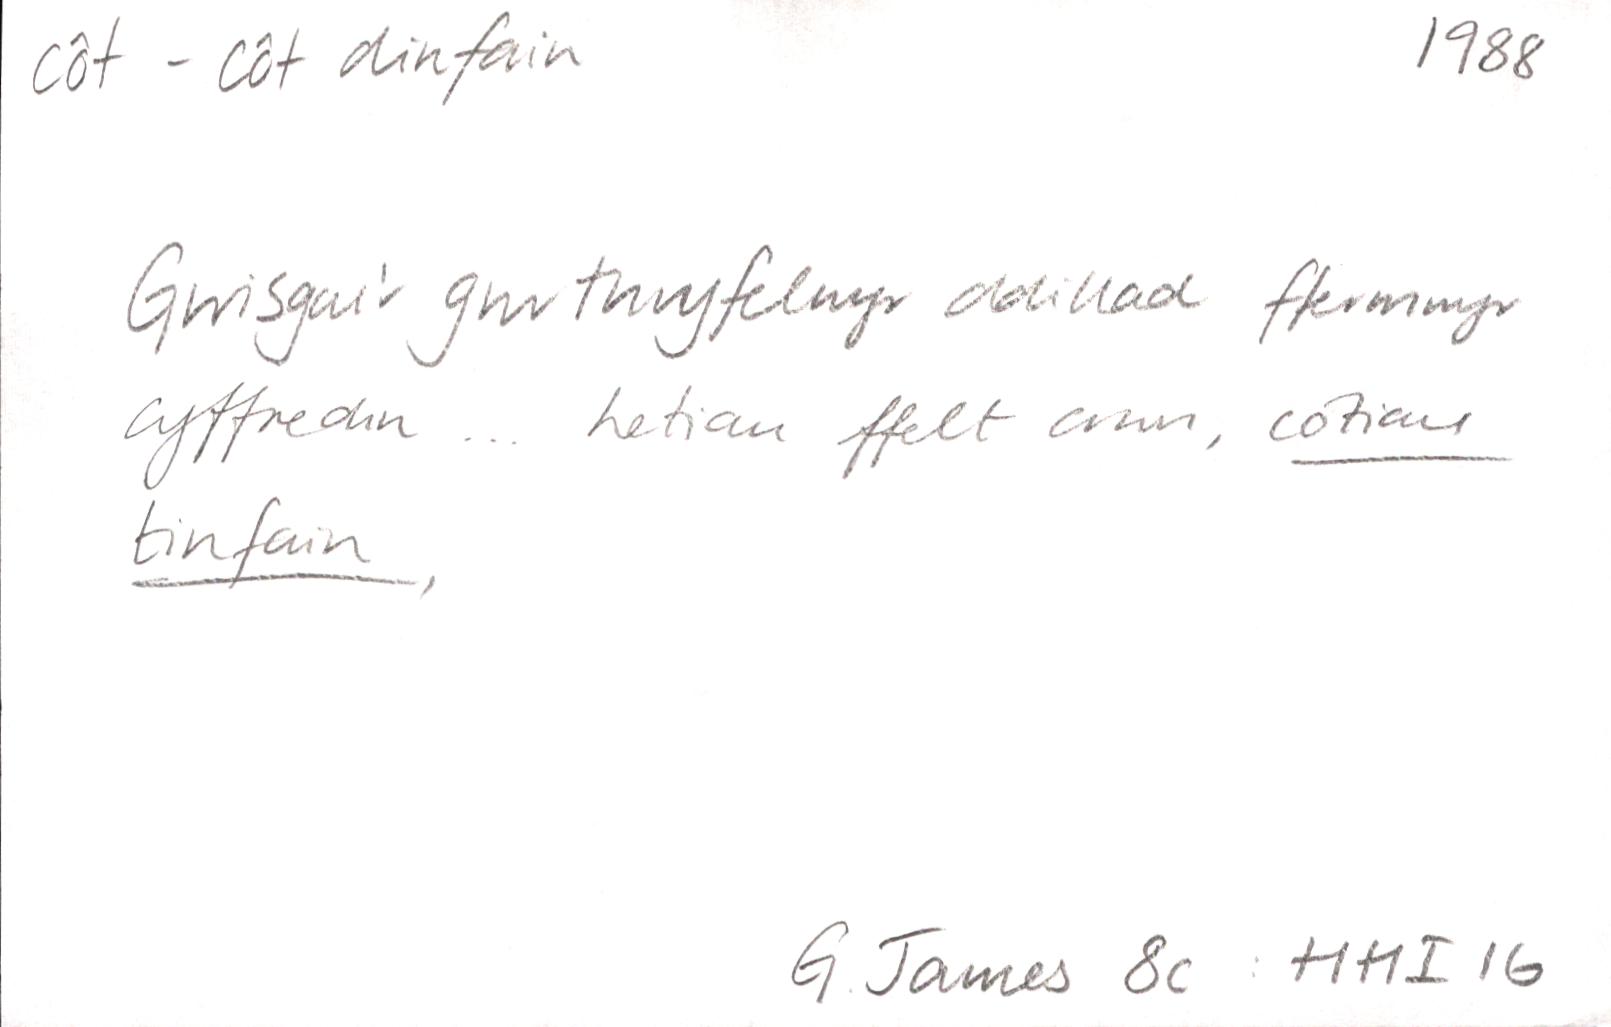 côt - côt dinfain 1988
Gwisgai'r gwrthryfelwyr ddillad ffermwyr
cyffredin ... hetiau ffelt crwn, cotiau
tinfain,
G. James 8c : HHI 16